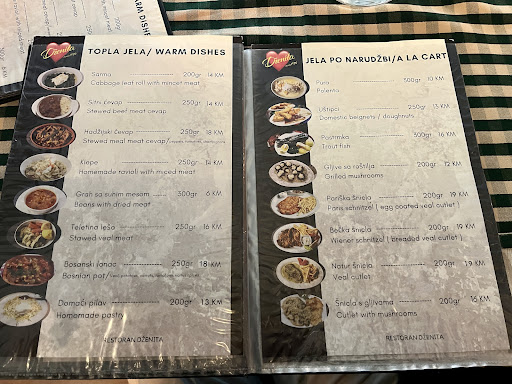 Dženita
TOPLA JELA/ WARM DISHES
Sarma 200gr 14 KM
Cabbage leaf roll with mincet meat
Sitni ćevap 250gr 14 KM
Stewed beef meat cevap
Hadžijski ćevap 250gr 18 KM
Stewed meal meat cevap/
Klepe 250gr 14 KM
Homemade ravioli with miced meat
Grah sa suhim mesom 300gr 6 KM
Beans with dried meat
Teletina lešo 250gr 16 KM
Stawed veal meat
Bosanski lonac 250gr 18 KM
Bosnian pot/
Domaći pilav 200gr 13 KM
Homemade pastry
RESTORAN DŽENITA
Dženita
JELA PO NARUDŽBI/A LA CART
Pura 500gr 10 KM
Polenta
Uštipci 250gr 13 KM
Domestic beignets / doughnuts
Pastrmka 300gr 16 KM
Trout fish
Gljive sa roštilja 200gr 12 KM
Grilled mushrooms
Pariška šnicla 200gr 19 KM
Paris schnitzel ( egg coated veal cutlet )
Bečka šnicla 200gr 19 KM
Wiener schnitzel ( breaded veal cutlet )
Natur šnicla 200gr 19 KM
Veal cutlet
Šnicla s gljivama 200gr 16 KM
Cutlet with mushrooms
RESTORAN DŽENITA
WARM DISHES